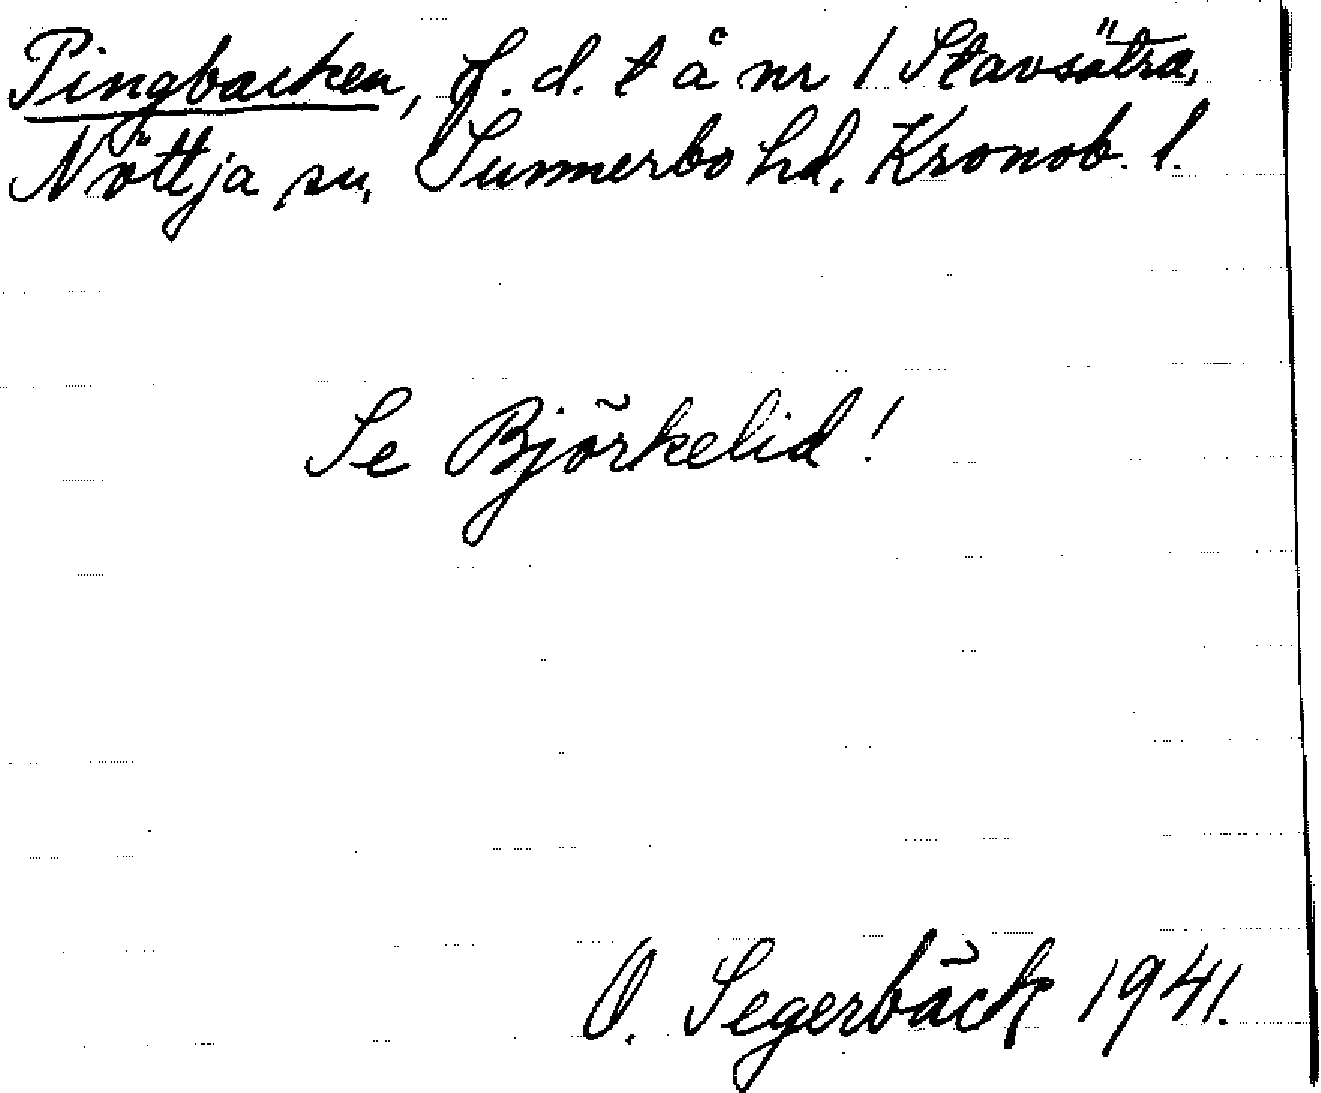 Pingbacken, f. d. t å nr 1 Stavsätra,
Nöttja sn, Sunnerbo hd, Kronob. l.
Se Björkelid!
O. Segerbäck 1941.